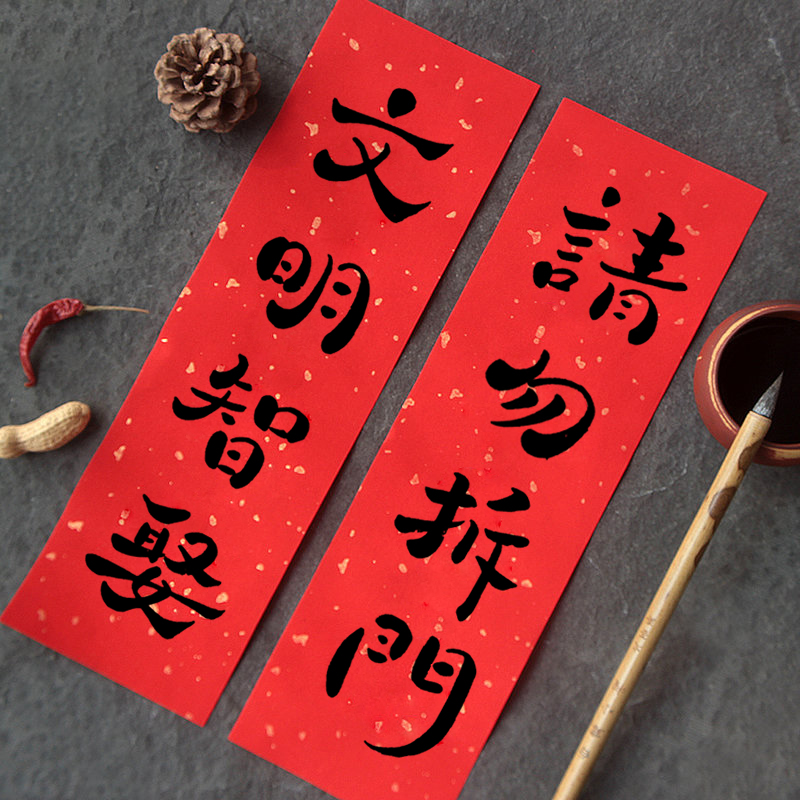 文明智娶
請勿拆門